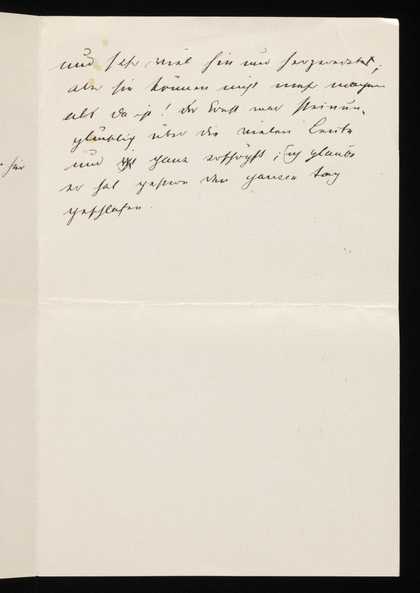 und sehr viel hin und hergeredet,
aber sie können nicht mehr machen
als da ist! Der Ernst war
über die vielen Leute
und ganz erschöpft; Ich glaube
er hat gestern den ganzen Tag
geschlafen.
für